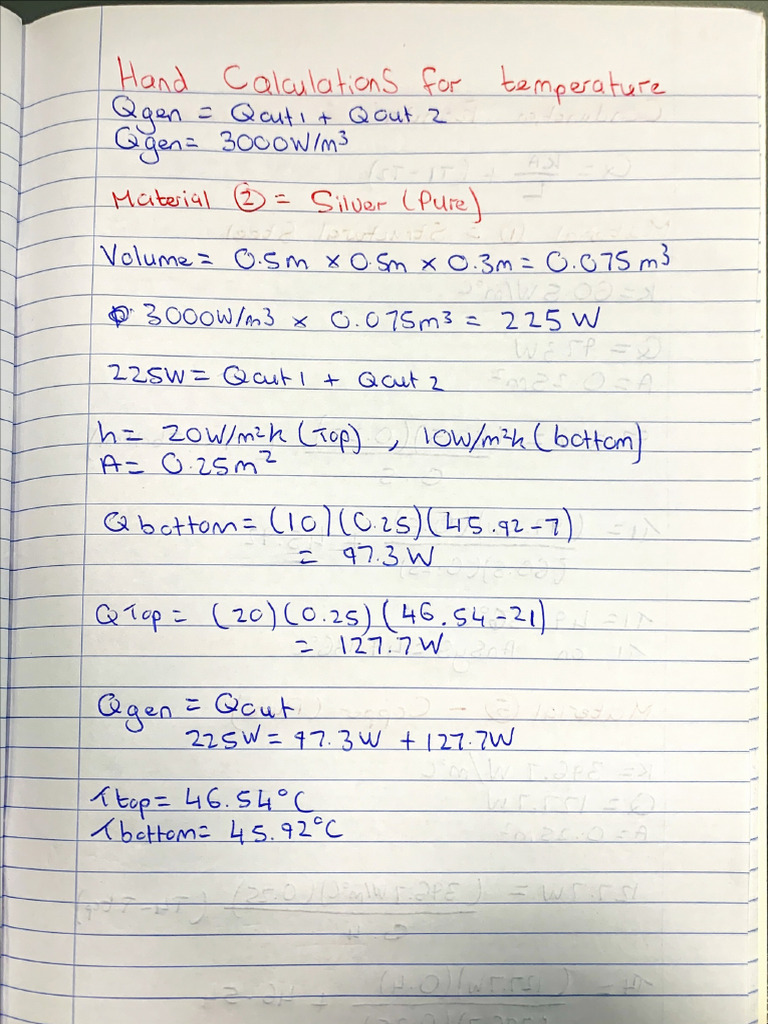 Hand Calculations for temperature
Qgen = Qout1 + Qout 2
Qgen = 3000W/m³
Material ② = Silver (Pure)
Volume = 0.5m × 0.5m × 0.3m = 0.075m³
3000W/m3 × 0.075m³ = 225 W
225W = Qout1 + Qout2
h = 20W/m²k (Top) , 10W/m²k (bottom)
A = 0.25m²
Qbottom = (10)(0.25)(45.92-7)
= 97.3W
QTop = (20)(0.25)(46.54-21)
= 127.7W
Qgen = Qout
225W = 97.3W + 127.7W
Ttop = 46.54°C
Tbottom = 45.92°C